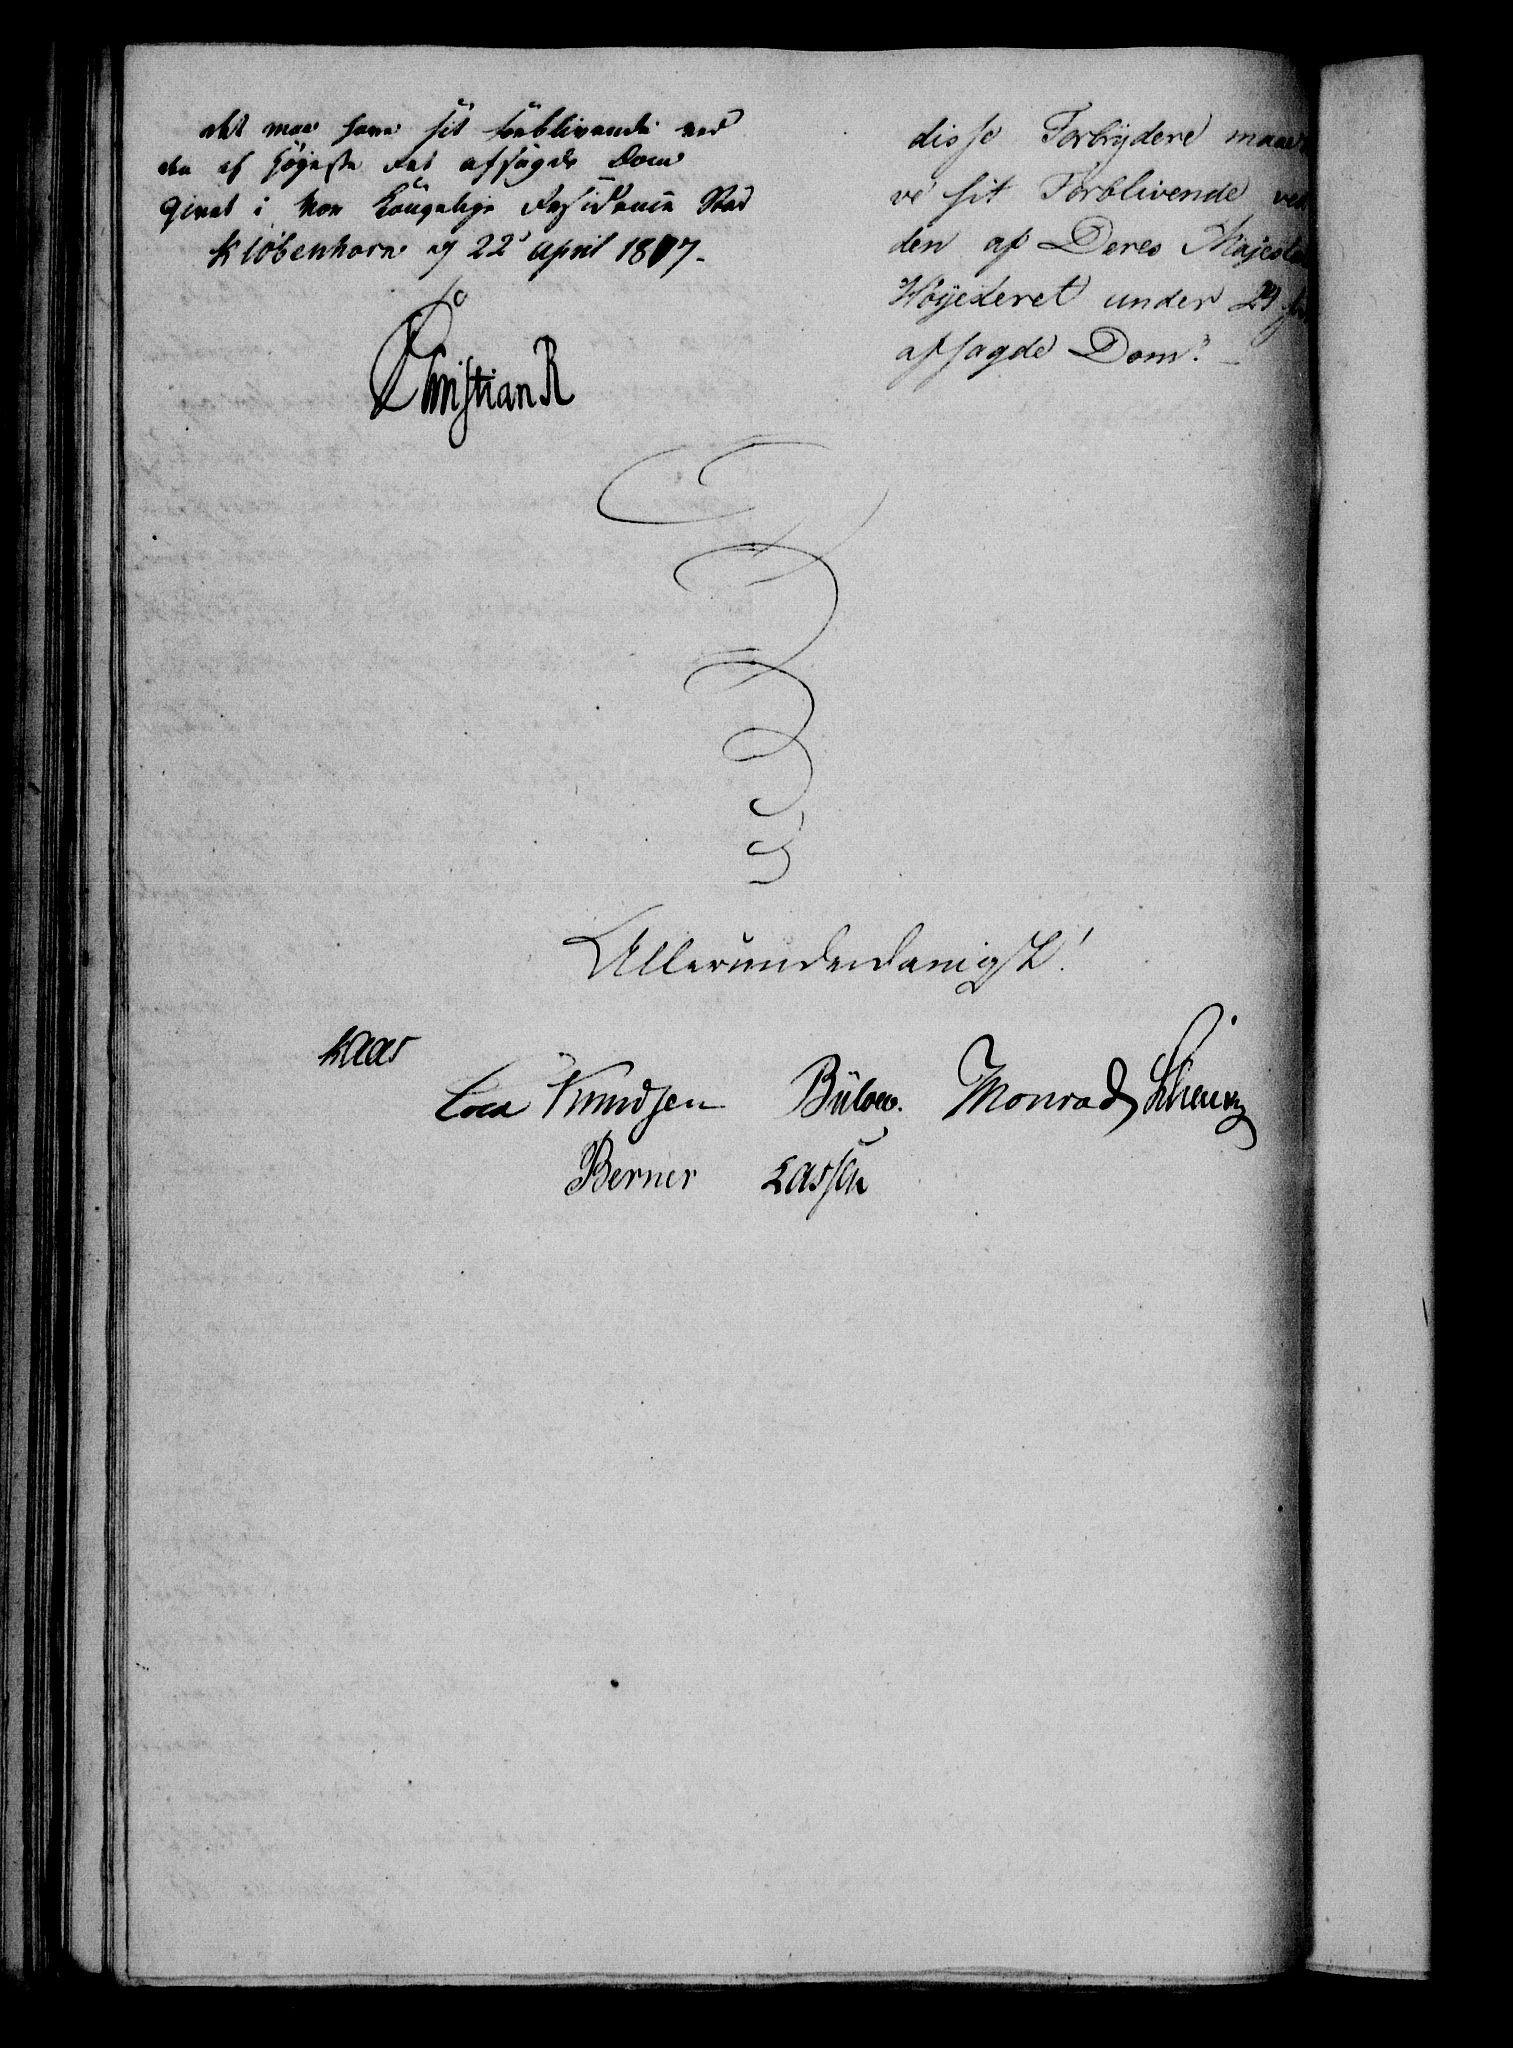 det maa have sit Forblivende ved
den af Høyeste Ret afsagde Dom
Givet i vor Kongelige Residence Stad
Kiöbenhavn d 22 April 1807.
Christian R
disse Forbrydere maae
ve sit Forblivende ved
den af Deres Majestæ
Höyesteret under 24
afsagde Dom. –
Allerunderdanigst!
Kaas
Cold Knudsen Bülow. Monrad
Berner Lassen